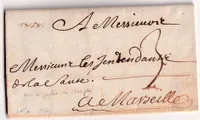 A Messieurs
Messieurs Les Intendants
de la Santé.
A Marseille